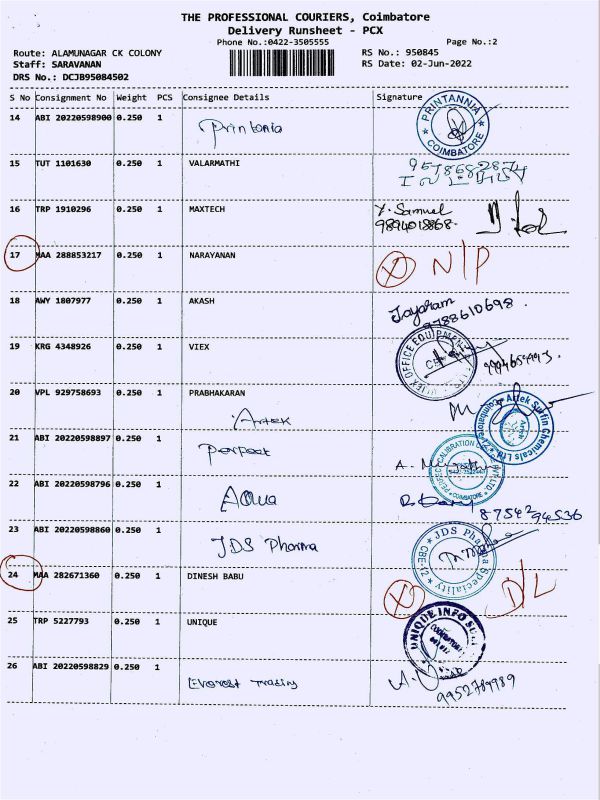 THE PROFESSIONAL COURIERS, Coimbatore
Delivery Runsheet - PCX
Phone No.:0422-3505555
Page No.:2
Route: ALAMUNAGAR CK COLONY
RS No.: 950845
Staff: SARAVANAN
RS Date: 02-Jun-2022
DRS No.: DCJB95084502
S No Consignment No Weight PCS Consignee Details Signature
14 ABI 20220598900 0.250 1 Printania
PRINTANNIA COIMBATORE
15 TUT 1101630 0.250 1 VALARMATHI
16 TRP 1910296 0.250 1 MAXTECH Y. Samuel
9894018868.
17 MAA 288853217 0.250 1 NARAYANAN N/P
18 AWY 1807977 0.250 1 AKASH Jayaram
9788610698.
19 KRG 4348926 0.250 1 VIEX
20 VPL 929758693 0.250 1 PRABHAKARAN
Artek
Artek Surfin Chemicals Ltd
21 ABI 20220598897 0.250 1
Perfect
22 ABI 20220598796 0.250 1
Aqua
87542 94536
23 ABI 20220598860 0.250 1
JDS Pharma
JDS Pharma Speciality
CBE-12
24 MAA 282671360 0.250 1 DINESH BABU D/L
25 TRP 5227793 0.250 1 UNIQUE
UNIQUE INFO
26 ABI 20220598829 0.250 1
Everest Trading
9952789989